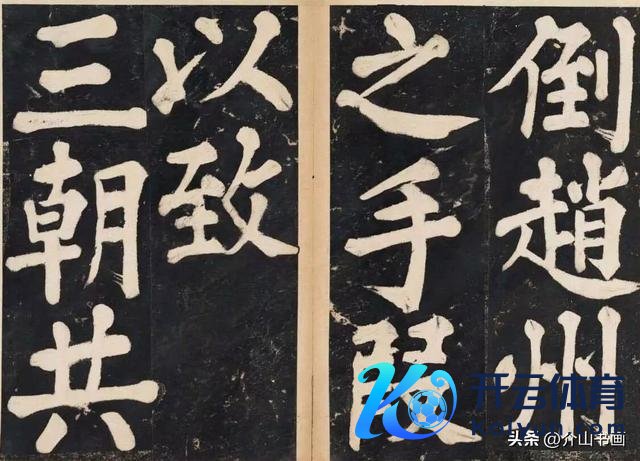 倒趙州
之手段
以致
三朝共
开云体育
头条 @介山书画